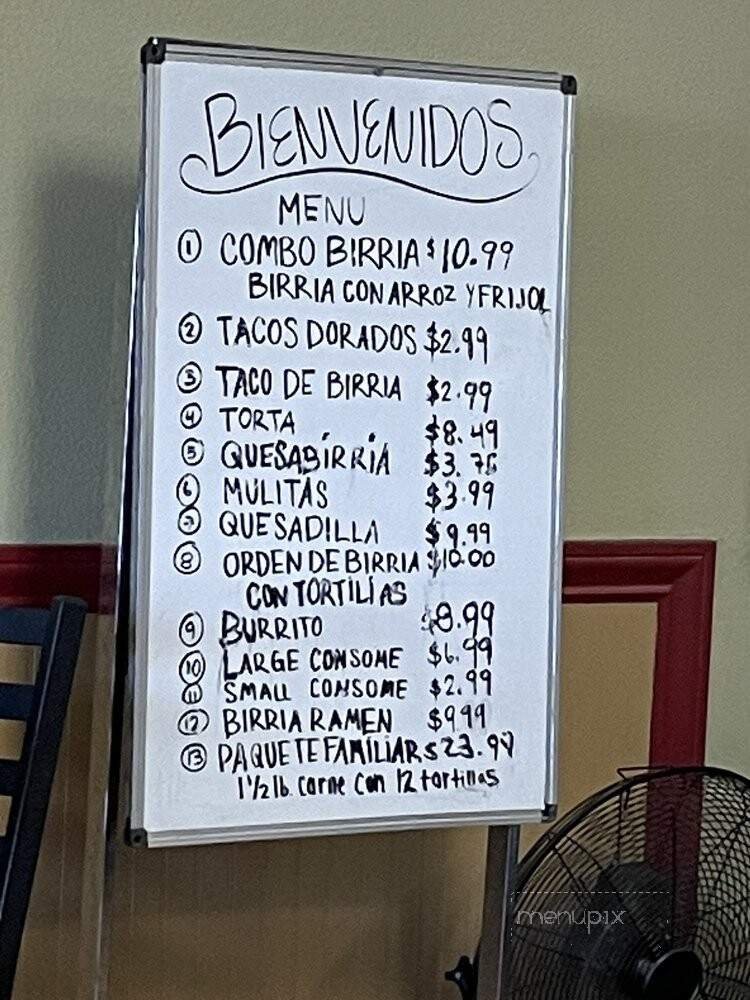 BIENVENIDOS
MENU
① COMBO BIRRIA $10.99
BIRRIA CON ARROZ Y FRIJOL
② TACOS DORADOS $2.99
③ TACO DE BIRRIA $2.99
④ TORTA $8.49
⑤ QUESABIRRIA $3.75
⑥ MULITAS $3.99
⑦ QUESADILLA $9.99
⑧ ORDEN DE BIRRIA $10.00
CON TORTILIAS
⑨ BURRITO $8.99
⑩ LARGE CONSOME $6.99
⑪ SMALL CONSOME $2.99
⑫ BIRRIA RAMEN $9.99
⑬ PAQUETE FAMILIAR $23.99
1 1/2 lb. carne con 12 tortillas
menupix